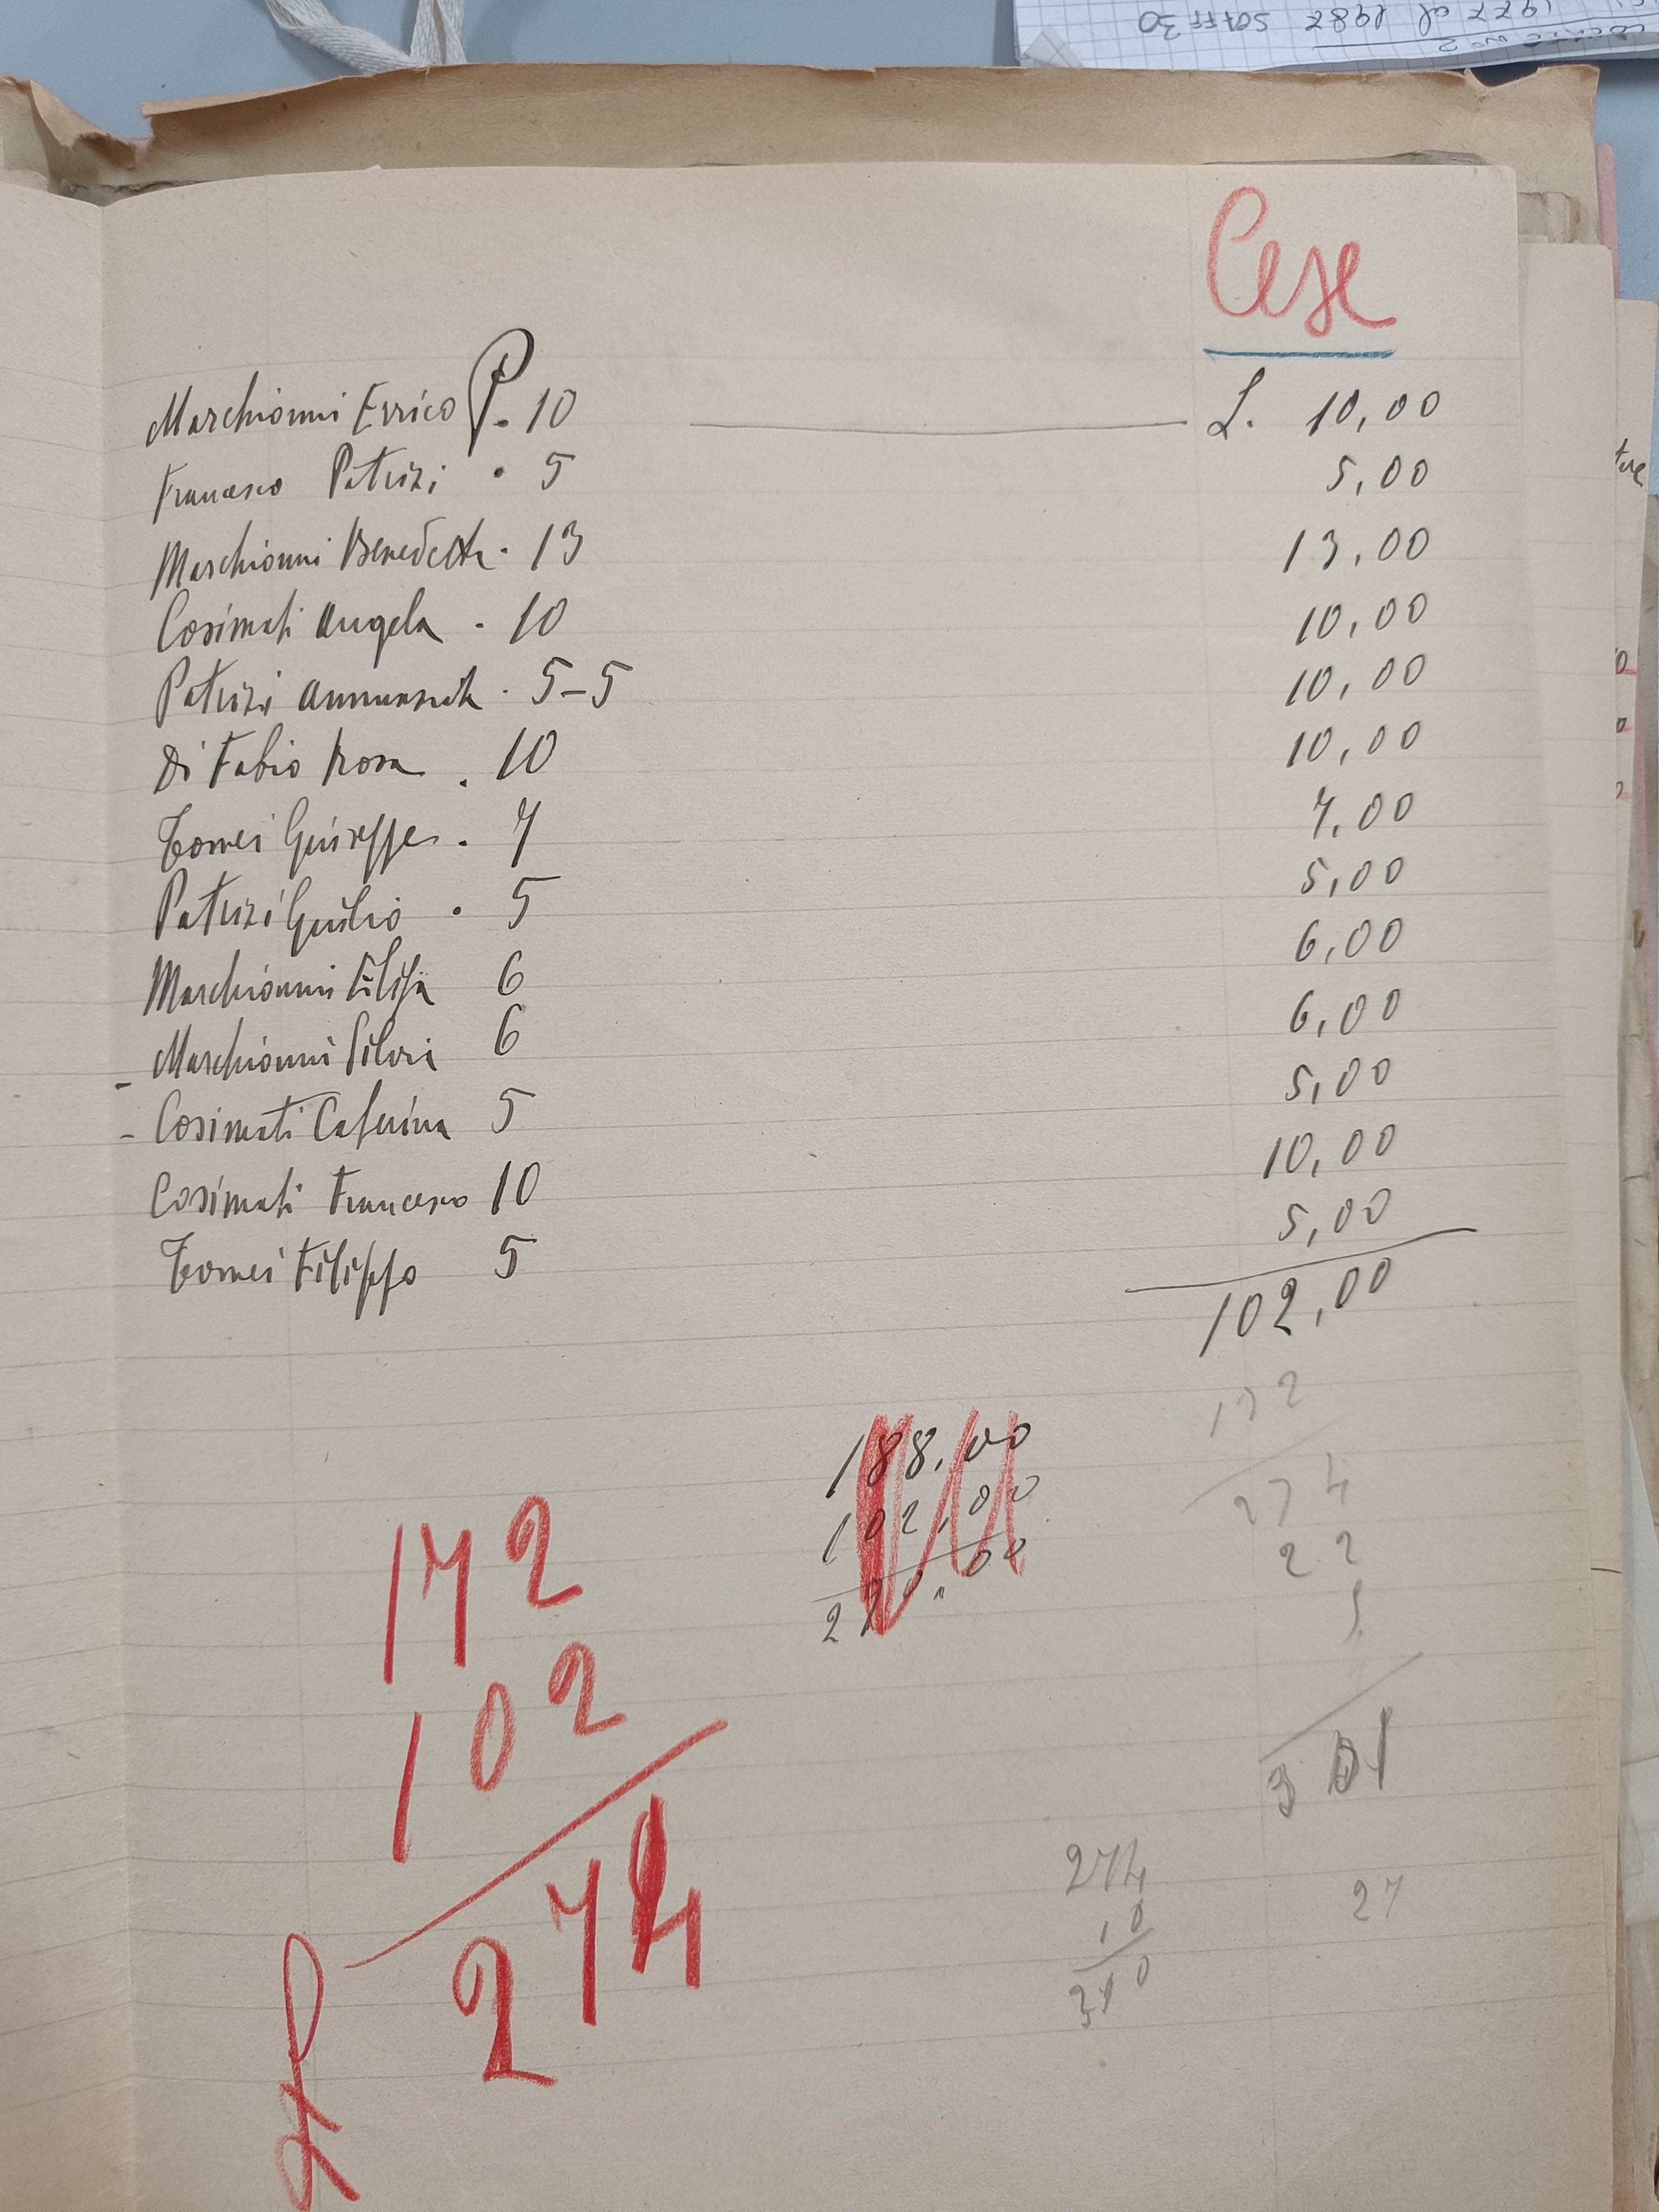 Cese
Marchionni Errico P. 10 L. 10,00
Francesco Patrizi . 5 5,00
Marchionni Benedetta . 13 13,00
Cosimati Angela . 10 10,00
Patrizi Annunziata . 5-5 10,00
Di Fabio Rosa . 10 10,00
Tomei Giuseppe . 7 7,00
Patrizi Giulio . 5 5,00
Marchionni 6 6,00
- Marchionni Silvia 6 6,00
- Cosimati Caterina 5 5,00
Cosimati Francesco 10 10,00
Tomei Filippo 5 5,00
102,00
172
274
22
301
188,00
102,00
172
102
L 274
274
27